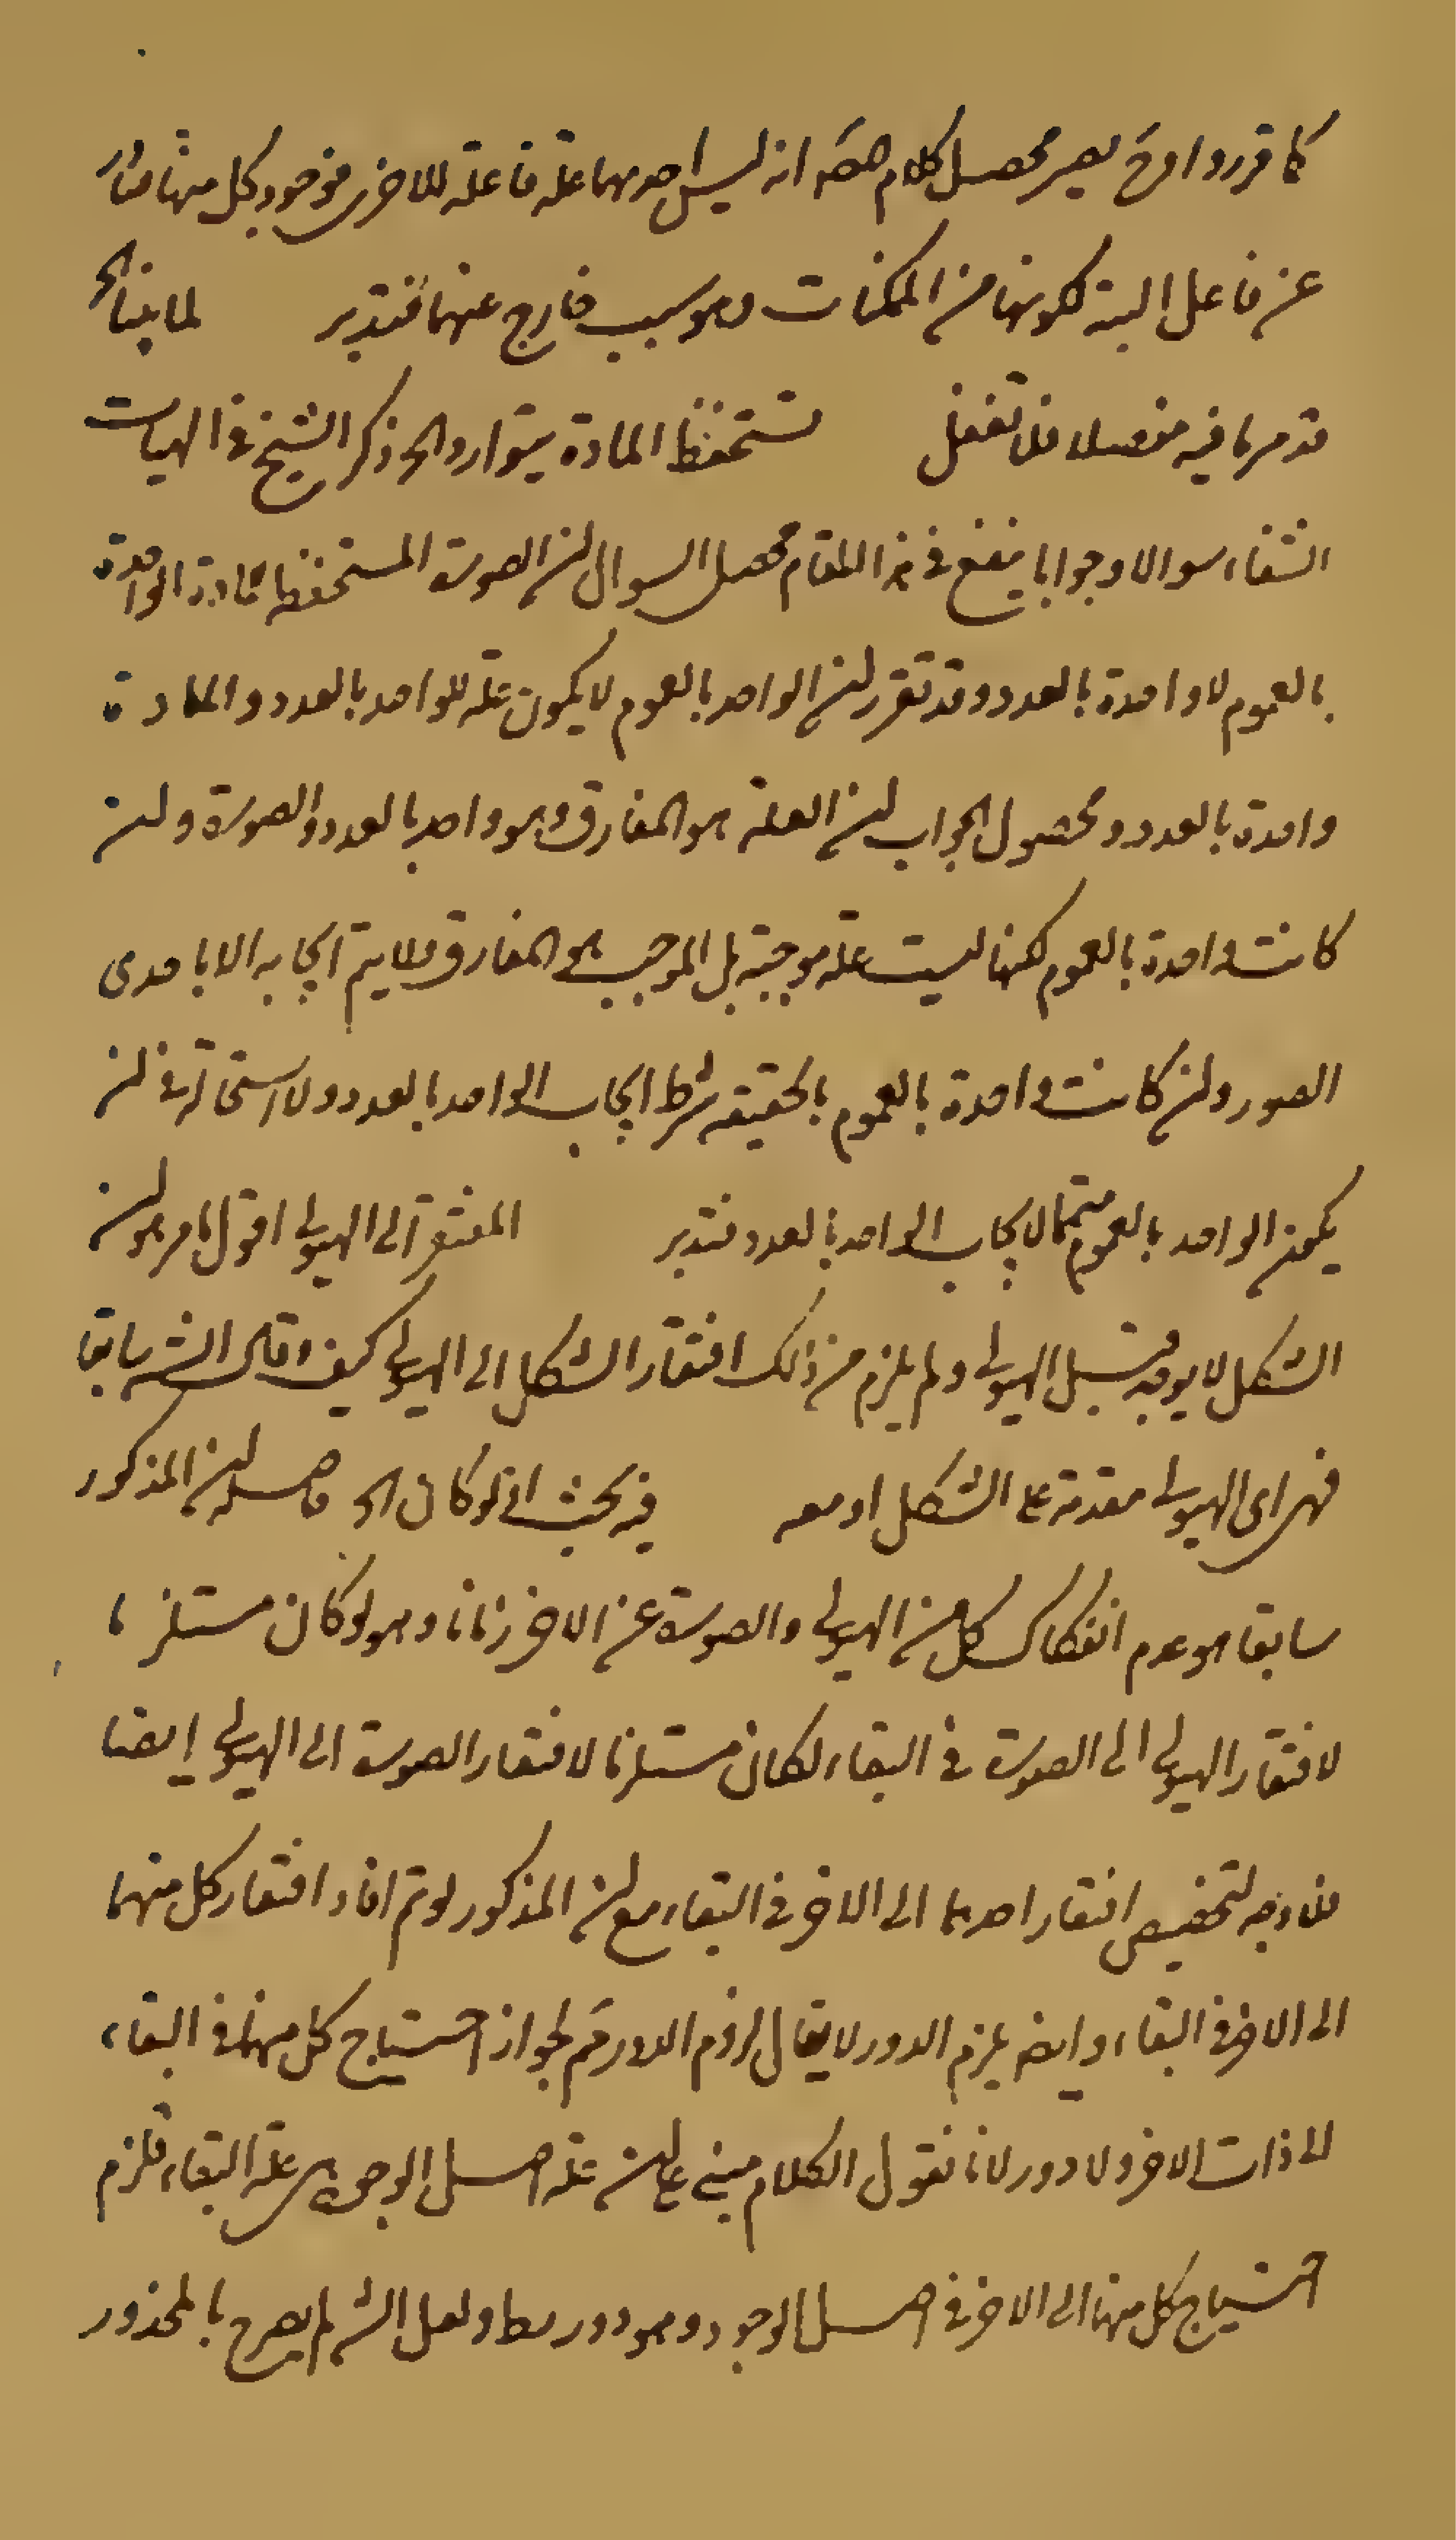 كما قرروا وح يصير محصل كلام المص انه ليس احدهما علة فاعلة للاخرى فوجود كل منهما
عن فاعل البتة لكونهما من الممكنات وهو سبب خارج عنهما فتدبر لما بينا الخ
قد مر ما فيه مفصلا فلا تغفل تستحفظ المادة بتوارد الخ ذكر الشيخ في الهيات
الشفاء سوالا وجوابا ينفع في هذا المقام محصل السوال ان الصورة المستحفظة للمادة الواحدة
بالعموم لا واحدة بالعدد وقد تقرر ان الواحد بالعموم لا يكون علة للواحد بالعدد والمادة
واحدة بالعدد ومحصول الجواب ان العلة هو المفارق وهو واحد بالعدد والصورة وان
كانت واحدة بالعموم لكنها ليست علة موجبة بل الموجب هو المفارق ولا يتم ايجابه الا باحدى
الصور وان كانت واحدة بالعموم بالحقيقة شرط ايجاب الواحد بالعدد ولا استحالة في ان
يكون الواحد بالعموم متمما لايجاب الواحد بالعدد فتدبر المفتقرة الى الهيولى اقول ما مر هو ان
الشكل لا يوجد قبل الهيولى ولم يلزم من ذلك افتقار الشكل الى الهيولى كيف وقال الشه سابقا
فهى اى الهيولى متقدمة على الشكل او معه فيه بحث اذ لو كان الخ حاصله ان المذكور
سابقا هو عدم انفكاك كل من الهيولى والصورة عن الاخر زمانا وهو لو كان مستلزما
لافتقار الهيولى الى الصورة في البقاء لكان مستلزما لافتقار الصورة الى الهيولى ايضا
فلا وجه لتخصيص افتقار احدهما الى الاخر في البقاء مع ان المذكور لو تم افاد افتقار كل منهما
الى الاخر في البقاء وايضه يلزم الدور لا يقال لزوم الدور مم لجواز احتياج كل منهما في البقاء
الى ذات الاخر ولا دور لانا نقول الكلام مبنى على ان علة اصل الوجود هى علة البقاء فلزم
احتياج كل منهما الى الاخر في اصل الوجود وهو دور ولعل الشه لم يصرح بالمحذور